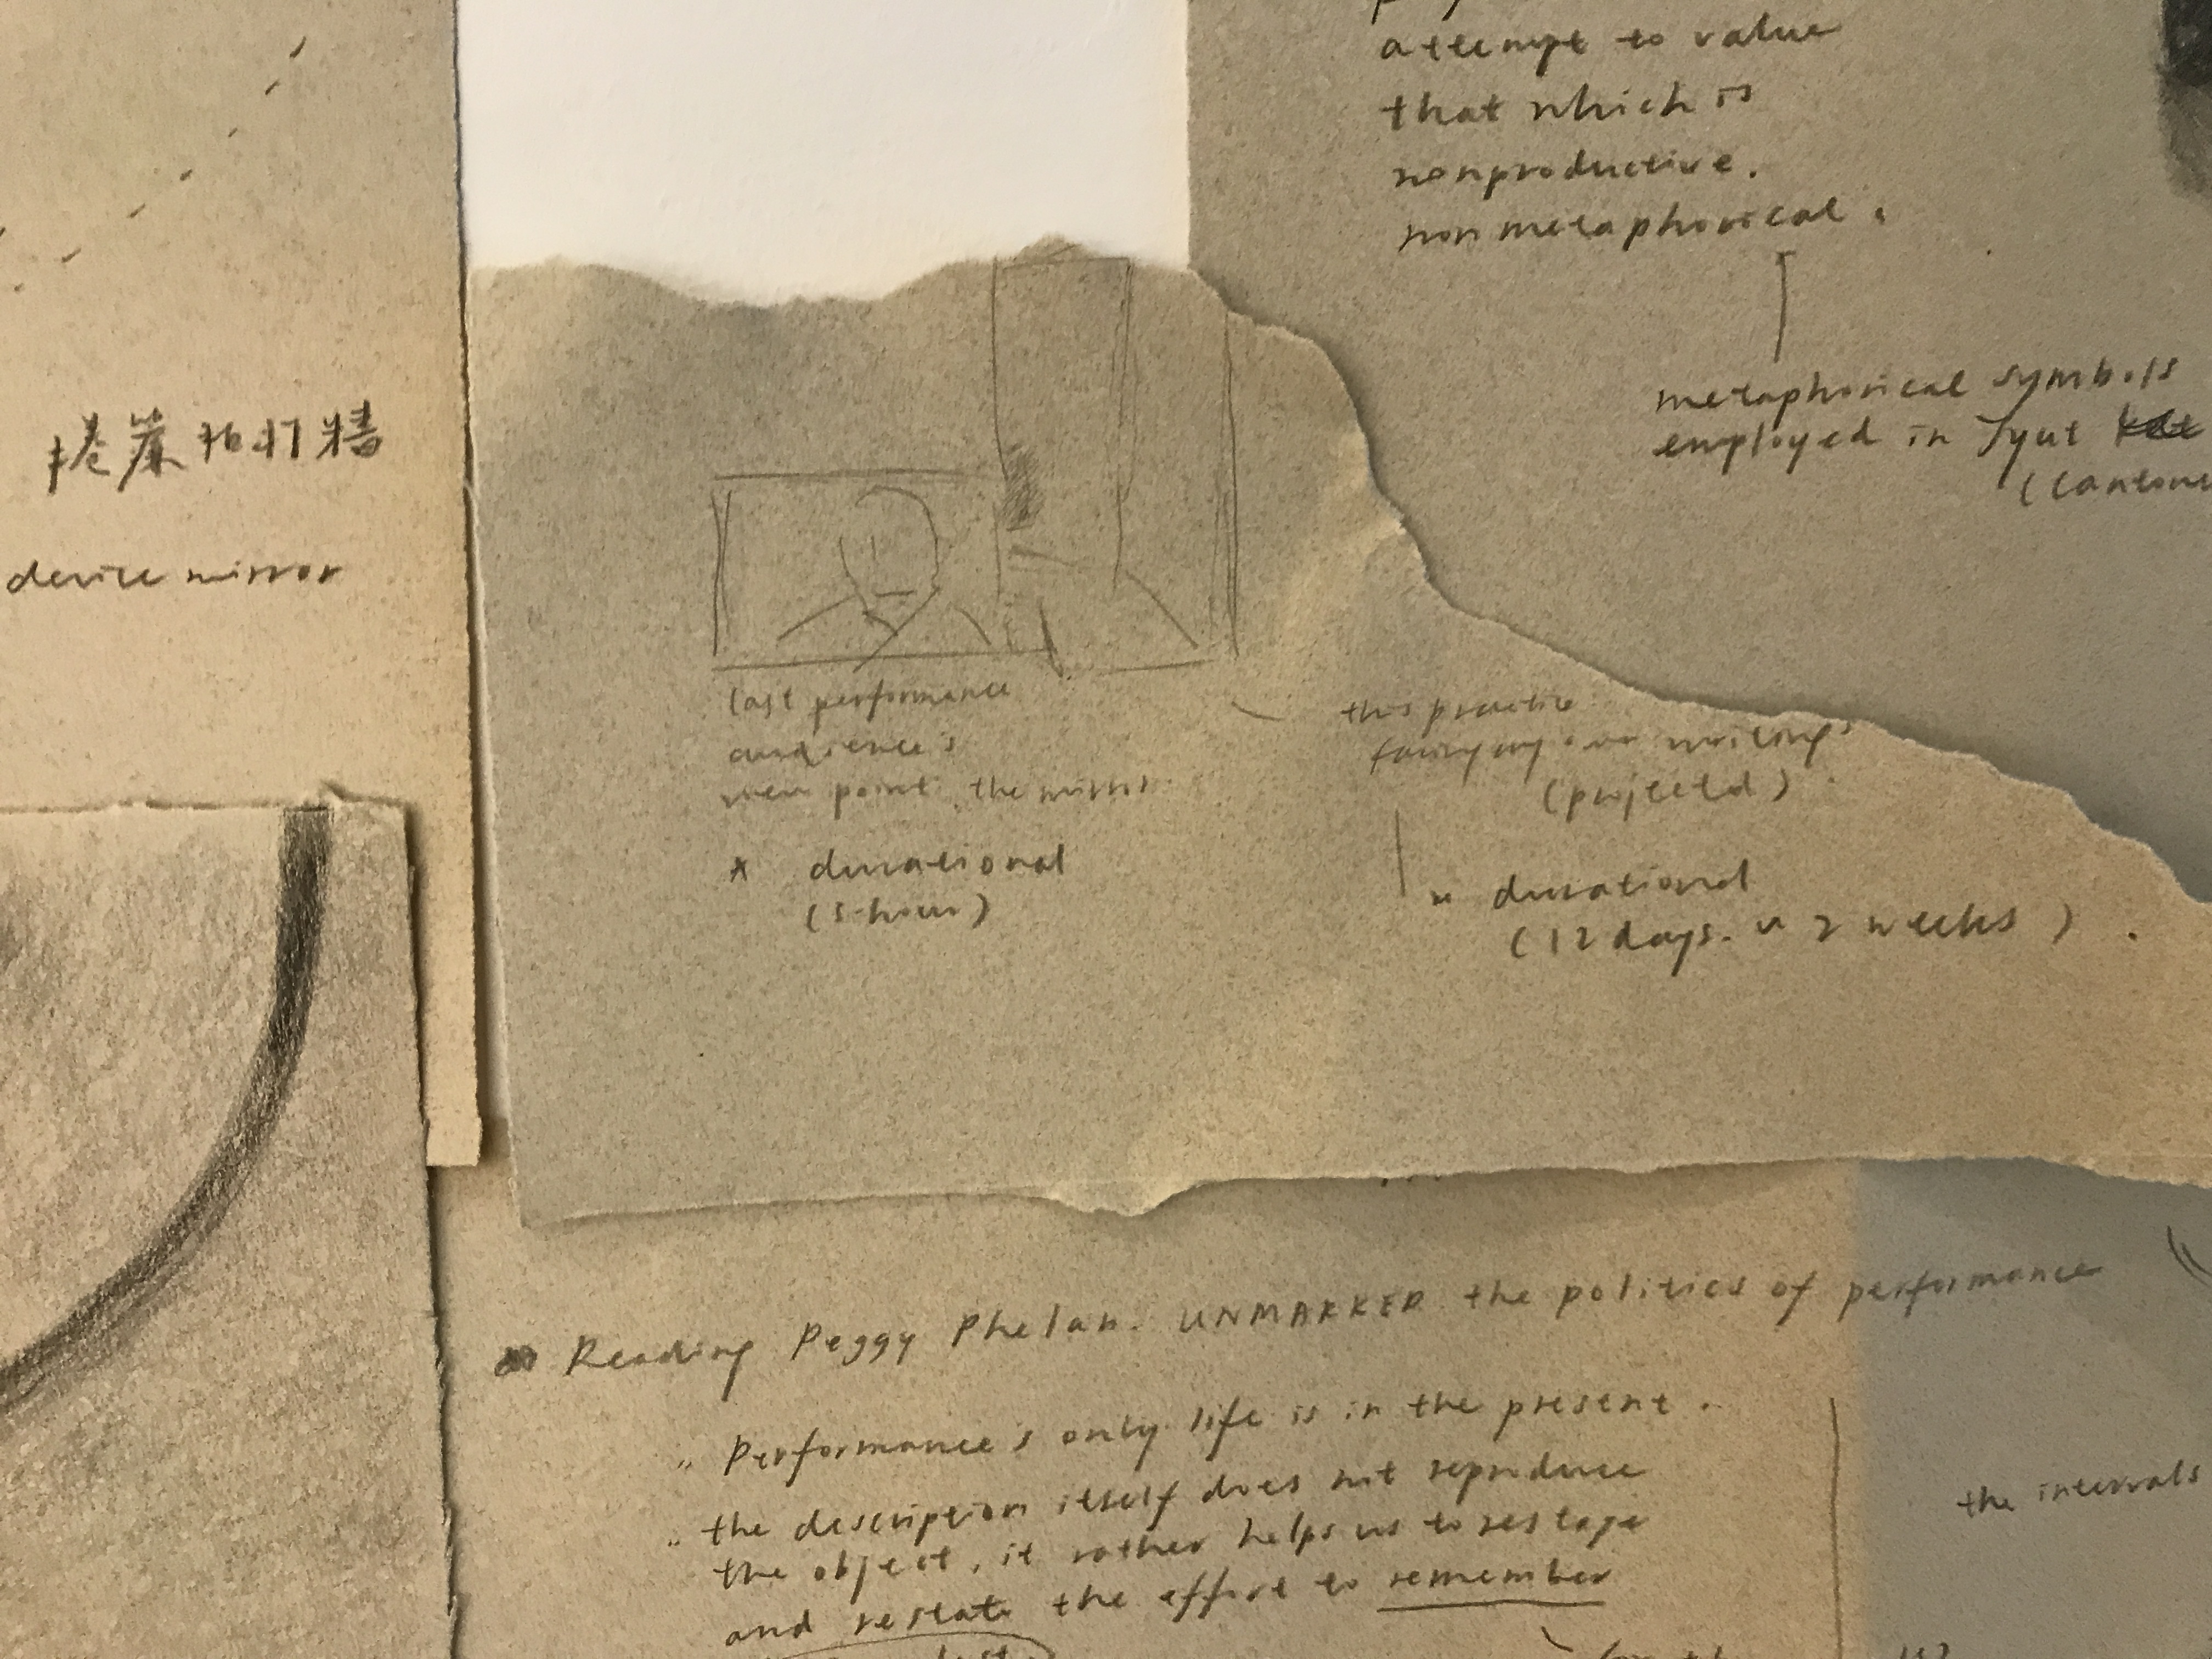 attempt to value
that which is
nonproductive.
nonmetaphorical.
metaphorical symbols
employed in Jyut
(Cantone
捲簾拍打牆
device mirror
last performance
audience's
view point, the mirror
* durational
(5-hour)
this practice
facing my own writings
(projected).
" durational
(12 days. 2 weeks).
Reading Peggy Phelan. UNMARKED the politics of performance
" Performance's only life is in the present.
" the description itself does not reproduce
the object, it rather helps us to restage
and restate the effort to remember
the intervals